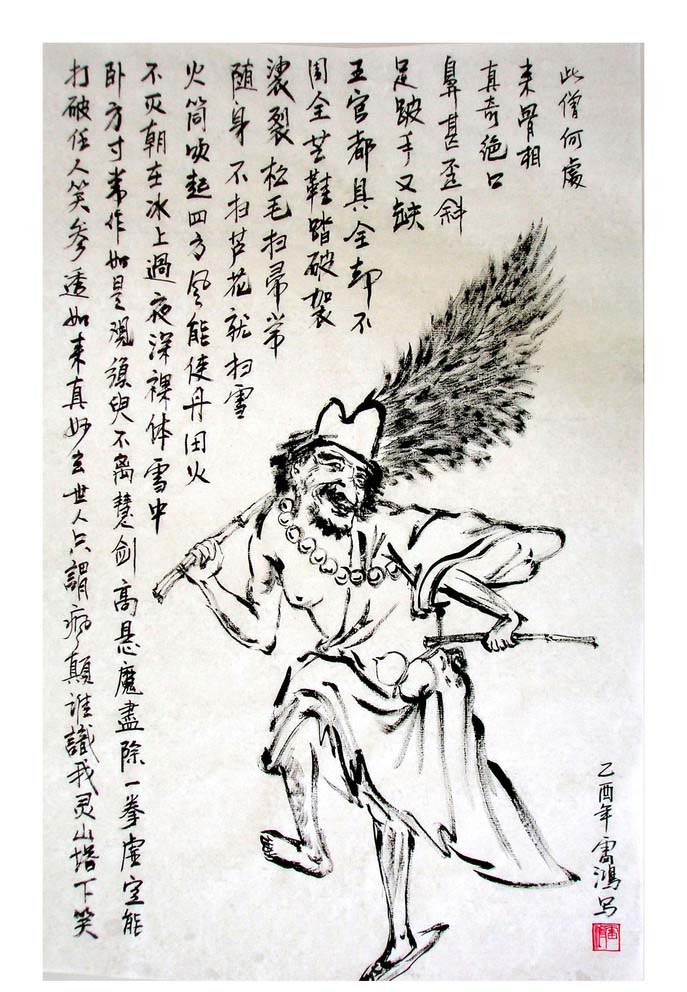 此僧何處
来骨相
真奇绝口
鼻甚歪斜
足跛手又缺
五官都具全却不
周全芒鞋踏破袈
裟裂松毛扫帚常
随身不扫芦花就扫雪
火筒吹起四方风能使丹田火
不灭朝在冰上過夜深裸体雪中
卧方寸常作如是观须臾不离慧剑高悬魔盡除一拳虚空能
打破任人笑参透如来真妙玄世人只謂疯颠谁識我灵山塔下笑
乙酉年雷鴻写